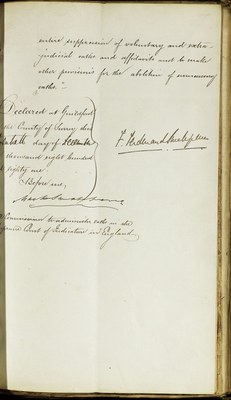 entire suppression of voluntary and extra-
judicial oaths and affidavits and to make
other provisions for the abolition of unnecessary
oaths".
Declared at Guildford
the County of Surrey this
day of
thousand eight hundred
eighty one
Before me,
A Commissioner to administer oaths in the
Supreme Court of Judicature in England